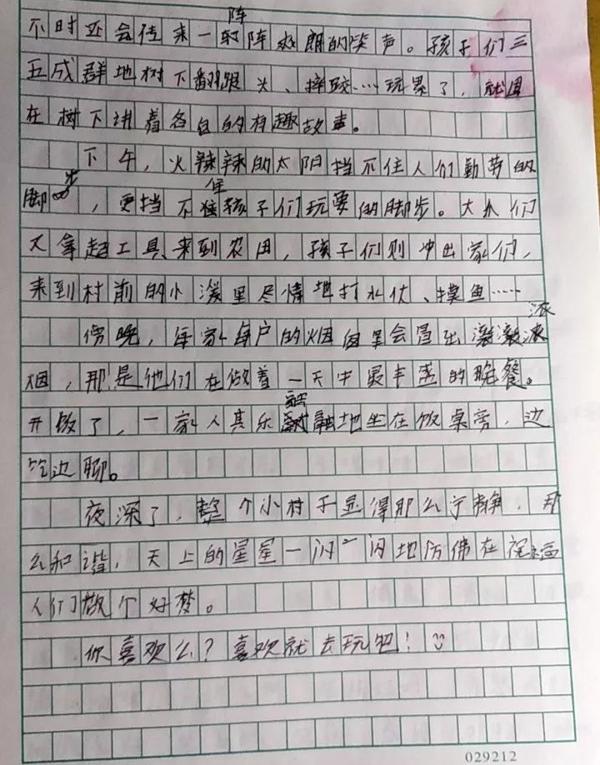 不时还会传来一阵阵爽朗的笑声。孩子们三
五成群地树下翻跟头、摔跤……玩累了，就围
在树下讲着各自的村趣故事。
下午，火辣辣的太阳挡不住人们勤劳的
脚步，更挡不住孩子们玩耍的脚步。大人们
又拿起工具来到农田，孩子们则冲出家们，
来到村前的小溪里尽情地打水仗、摸鱼……
傍晚，每家每户的烟囱里会冒出滚滚浓
烟，那是他们在做着一天中最丰盛的晚餐。
开饭了，一家人其乐融融地坐在饭桌旁，边
吃边聊。
夜深了，整个小村子显得那么宁静，那
么和谐，天上的星星一闪一闪地仿佛在祝福
人们做个好梦。
你喜欢么？喜欢就去玩吧！☺
029212